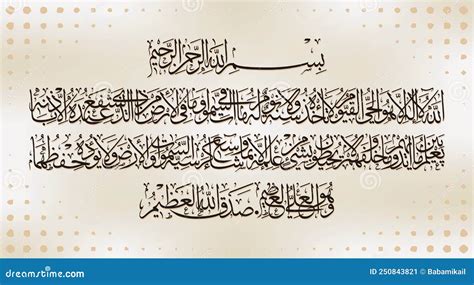 بسم الله الرحمن الرحيم
الله لا إله إلا هو الحي القيوم لا تأخذه سنة ولا نوم له ما في السموات وما في الأرض من ذا الذي يشفع عنده إلا بإذنه
يعلم ما بين أيديهم وما خلفهم ولا يحيطون بشيء من علمه إلا بما شاء وسع كرسيه السموات والأرض ولا يؤده حفظهما
وهو العلي العظيم صدق الله العظيم
dreamstime.com
ID 250843821 © Babamikail